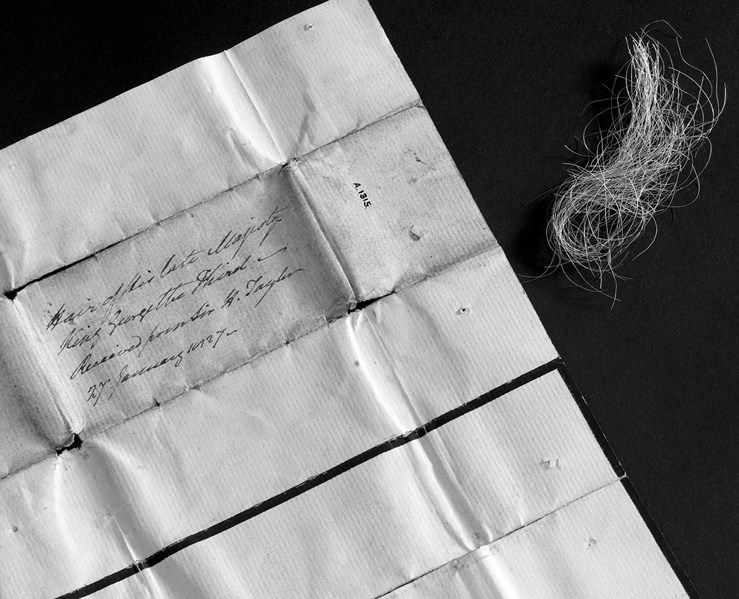 Hair of his late Majesty
King George the Third.
Received from Sir H. Taylor
27. January 1827.
A.1315.